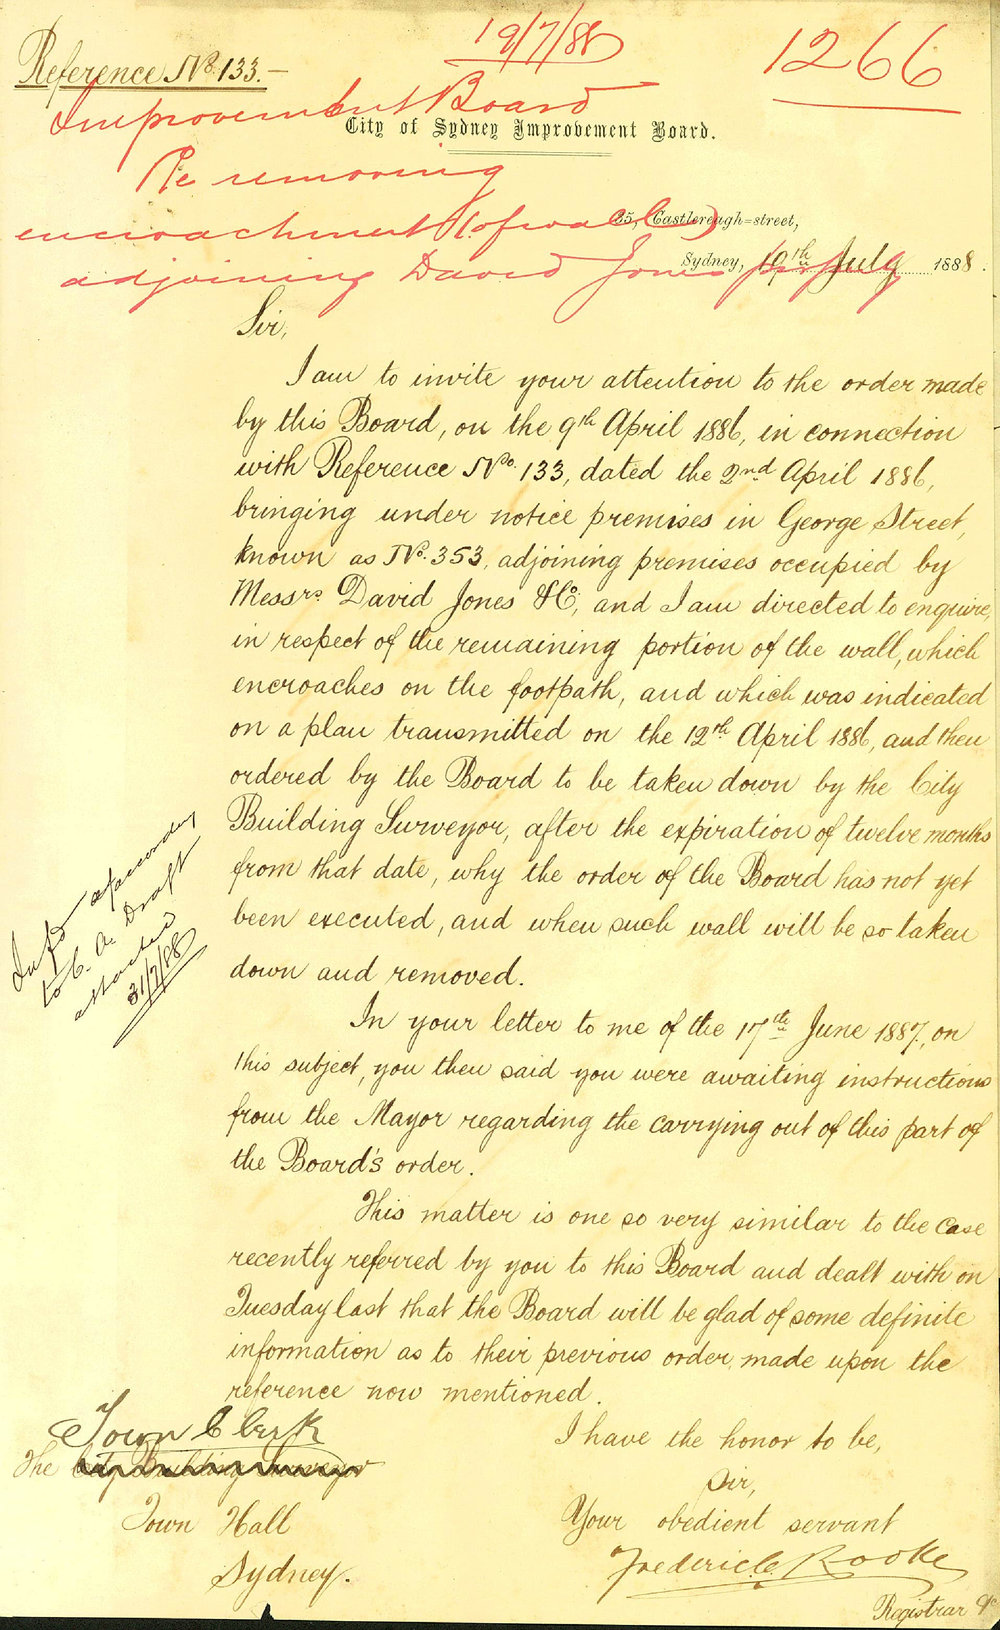 Reference No. 133.—
19/7/88
1266
Improvement Board
City of Sydney Improvement Board.
Re removing
encroachment (of wall)
35, Castlereagh=street,
adjoining David Jones
Sydney, 19th July 1888.
Sir,
I am to invite your attention to the order made
by this Board, on the 9th April 1886, in connection
with Reference No. 133, dated the 2nd April 1886,
bringing under notice premises in George Street,
known as No. 353, adjoining premises occupied by
Messrs. David Jones & Co, and I am directed to enquire,
in respect of the remaining portion of the wall, which
encroaches on the footpath, and which was indicated
on a plan transmitted on the 12th April 1886, and then
ordered by the Board to be taken down by the City
Building Surveyor, after the expiration of twelve months
from that date, why the order of the Board has not yet
been executed, and when such wall will be so taken
down and removed.
Info according
to C. A. Draft
attached
31/7/88
In your letter to me of the 17th June 1887, on
this subject, you then said you were awaiting instructions
from the Mayor regarding the carrying out of this part of
the Board's order.
This matter is one so very similar to the case
recently referred by you to this Board and dealt with on
Tuesday last that the Board will be glad of some definite
information as to their previous order, made upon the
reference now mentioned.
Town Clerk
The City Building Surveyor
Town Hall
Sydney.
I have the honor to be,
Sir,
Your obedient servant
Frederic C. Rooke
Registrar &c